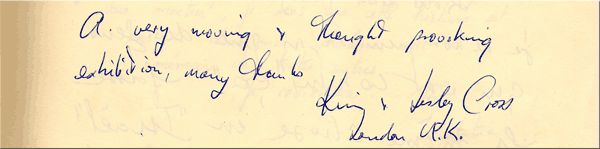 A. very moving & thought provoking
exhibition, many thanks
& Lesley Cross
London U.K.